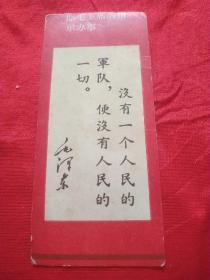 没有一个人民的
軍队，便没有人民的
一切。
毛泽东